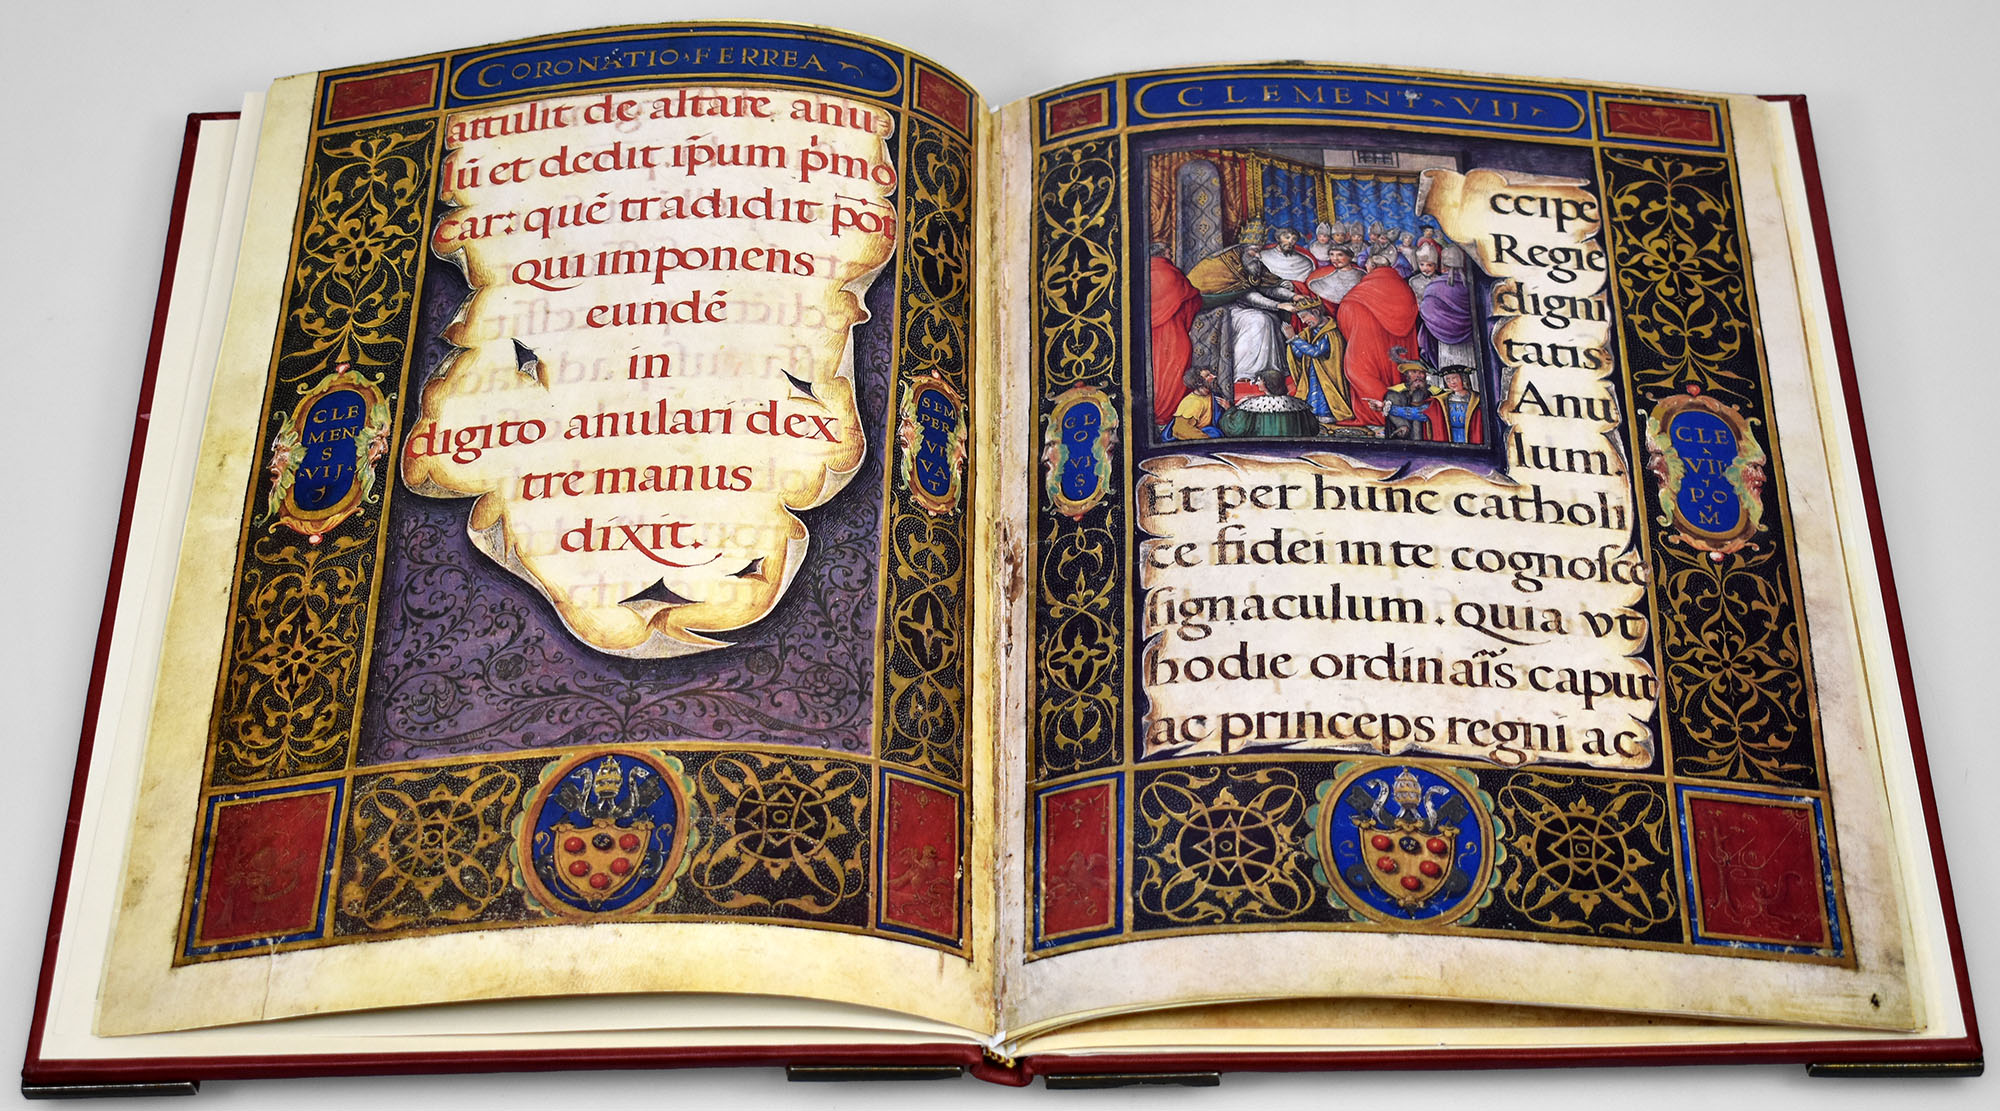 CORONATIO·FERREA
attulit de altare anu
lū et dedit ip̄um p̄mo
car: quē tradidit pōt
qui imponens
eundē
in
digito anulari dex
tre manus
dixit.
CLE
MEN
S
·VIJ·
SEM
PER
VI
VA
T
CLEMENT·VIJ·
ccipe
Regie
digni
tatis
Anu
lum.
Et per hunc catholi
ce fidei in te cognosce
signaculum. quia ut
hodie ordinaīs caput
ac princeps regni ac
CLO
VI
S
CLE
·VII·
PO
M
4